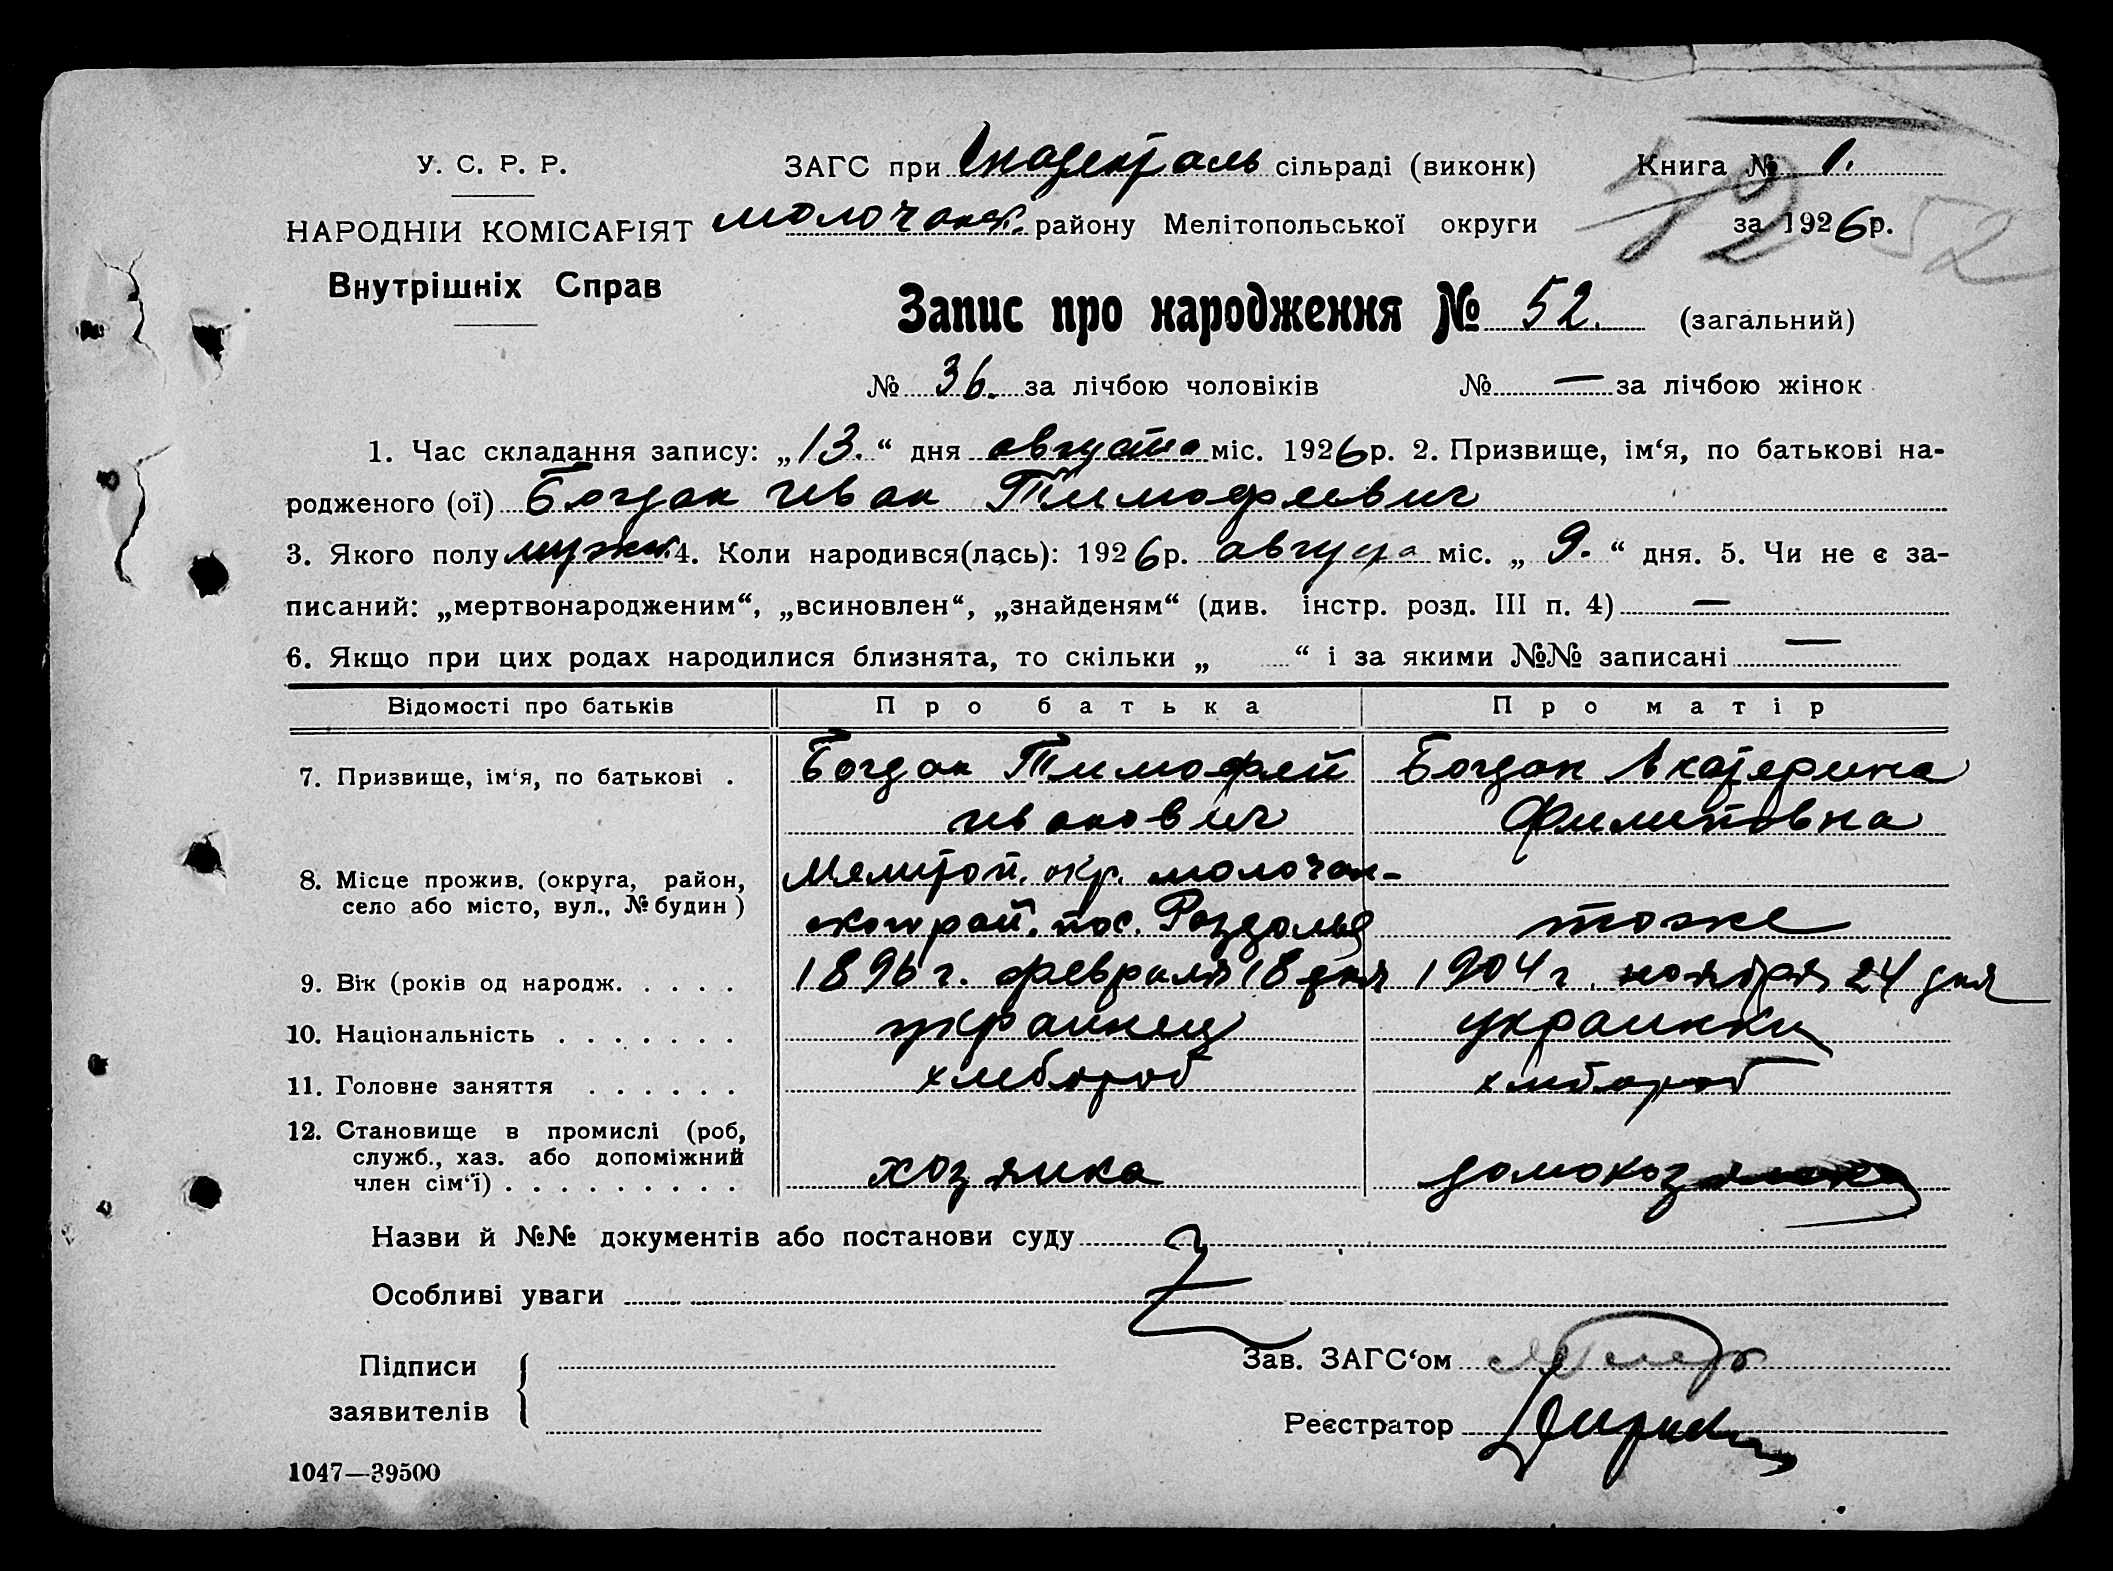 У. С. Р. Р.
ЗАГС при сільраді (виконк)
Книга № 1.
НАРОДНІЙ КОМІСАРІЯТ
Молочанск. району Мелітопольської округи
за 1926 р.
52
Внутрішніх Справ
Запис про народження № 52. (загальний)
№ 36. за лічбою чоловіків № — за лічбою жінок
1. Час складання запису: „13.“ дня августа міс. 1926 р. 2. Призвище, ім‘я, по батькові на-
родженого (ої) Богдан Иван Тимофеевич
3. Якого полу мужск. 4. Коли народився(лась): 1926 р. августа міс. „ 9. “ дня. 5. Чи не є за-
писаний: „мертвонародженим“, „всиновлен“, „знайденям“ (див. інстр. розд. III п. 4) —
6. Якщо при цих родах народилися близнята, то скільки „ “ і за якими №№ записані —
Відомості про батьків Про батька Про матір
7. Призвище, ім‘я, по батькові . Богдан Тимофей Богдан Екатерина
Иванович Филиповна
8. Місце прожив. (округа, район, Мелитоп. окр. Молочан-
село або місто, вул., № будин) ского рай. пос. Роздолья тоже
9. Вік (років од народж. . . . . 1896 г. февраля 18 дня 1904 г. ноября 24 дня
10. Національність . . . . . . . украинец украинка
11. Головне заняття . . . . . . хлебороб хлебороб
12. Становище в промислі (роб,
служб., хаз. або допоміжний
член сім‘ї) . . . . . . . . . хозяика домохозяика
Назви й №№ документів або постанови суду
Особливі уваги
Підписи
Зав. ЗАГС‘ом
заявителів
Реєстратор
1047—39500